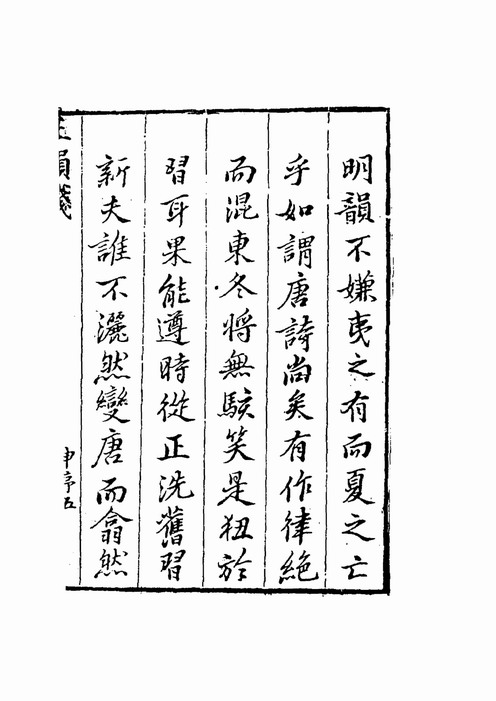 明韻不嫌夷之有而夏之亡
乎如謂唐詩尚矣有作律絕
而混東冬將無駭笑是狃於
習耳果能遵時從正洗舊習
新夫誰不灑然變唐而翕然
正韻箋
申序五